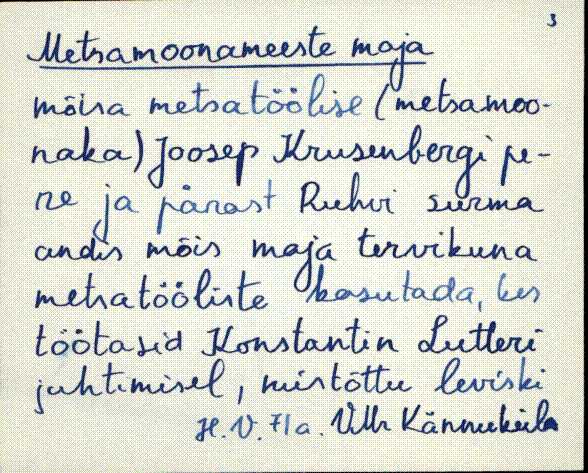 3
Metsamoonameeste maja
mõisa metsatöölise (metsamoo-
naka) Joosep Krusenbergi pe-
re ja pärast Ruhvi surma
andis mõis maja tervikuna
metsatööliste kasutada, kes
töötasid Konstantin Lutleri
juhtimisel, mistõttu leviski
H. V. 71 a. Villi Kännuküla